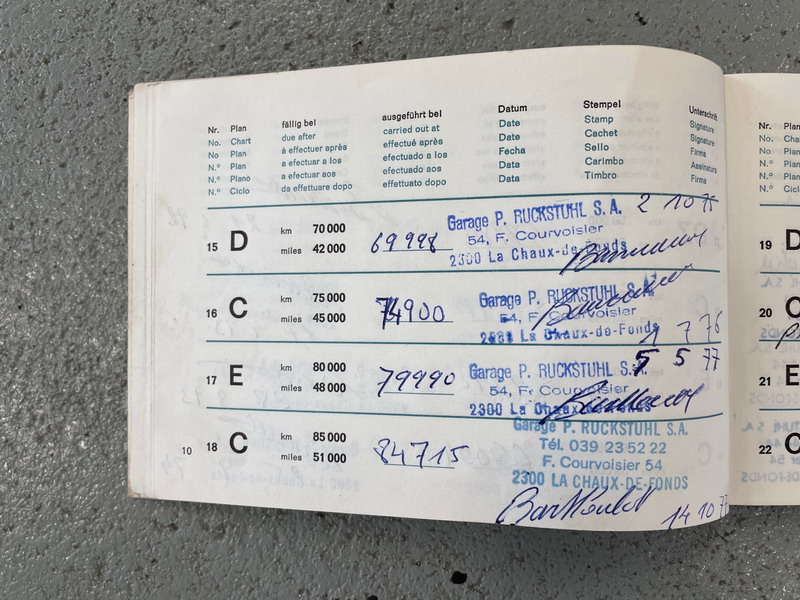 Nr. Plan fällig bei ausgeführt bei Datum Stempel Unterschrift
No. Chart due after carried out at Date Stamp Signature
No Plan à effectuer après effectué après Date Cachet Signature
N.º Plan a efectuar a los efectuado a los Fecha Sello Firma
N.º Plano a efectuar aos efectuado aos Data Carimbo Assinatura
N.º Ciclo da effettuare dopo effettuato dopo Data Timbro Firma
15 D km 70 000 miles 42 000 69998 Garage P. RUCKSTUHL S.A. 2 10 75
54, F. Courvoisier
2300 La Chaux-de-Fonds
16 C km 75 000 miles 45 000 74900 Garage P. RUCKSTUHL S.A.
54, F. Courvoisier
La Chaux-de-Fonds 1 7 76
17 E km 80 000 miles 48 000 79990 Garage P. RUCKSTUHL S.A. 5 5 77
54, F. Courvoisier
2300 La Chaux-de-Fonds
10 18 C km 85 000 miles 51 000 84715 Garage P. RUCKSTUHL S.A.
Tél. 039 23 52 22
F. Courvoisier 54
2300 LA CHAUX-DE-FONDS
14 10 77
Nr.
No.
No
N.º
N.º
N.º
19
20 C
21 E
22 C